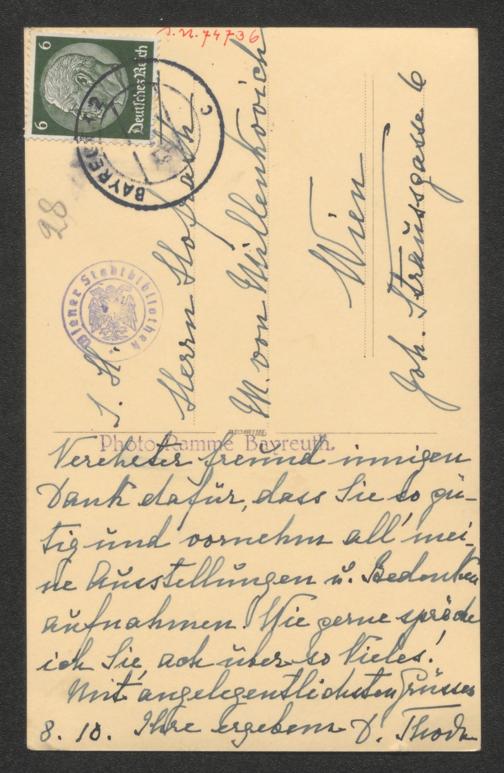 I. N. 74736
6
6
Deutsches Reich
BAYREUTH 2
c
28
Wiener Stadtbibliothek
S. H.
Herrn Hofrath
M. von Millenkovich
Wien
Joh. Straussgasse 6
Photo Ramme Bayreuth.
Verehrter Freund innigen
Dank dafür, dass Sie so gü-
tig und vornehm all' mei-
ne Ausstellungen u. Bedenken
aufnahmen. Wie gerne spräche
ich Sie, ach über so Vieles!
Mit angelegentlichsten Grüssen
8. 10. Ihre ergebene D. Thode